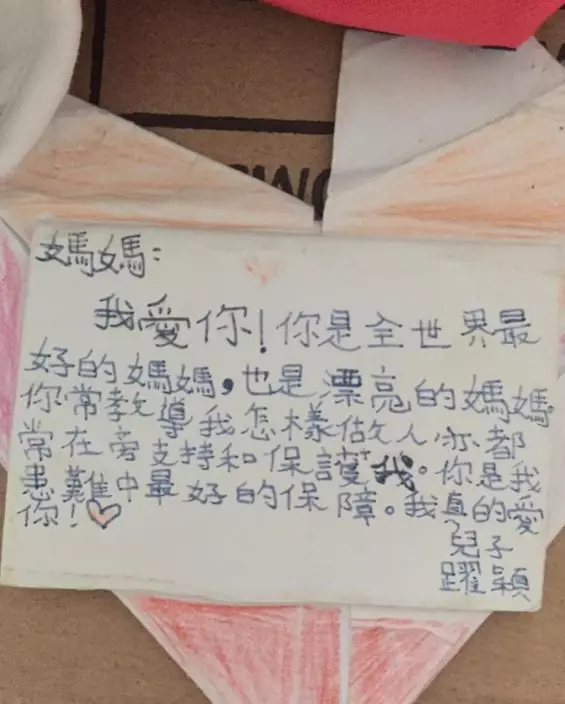 媽媽：
我愛你！你是全世界最
好的媽媽，也是漂亮的媽媽。
你常教導我怎樣做人，亦都
常在旁支持和保護我。你是我
患難中最好的保障。我真的愛
你！
兒子
躍穎